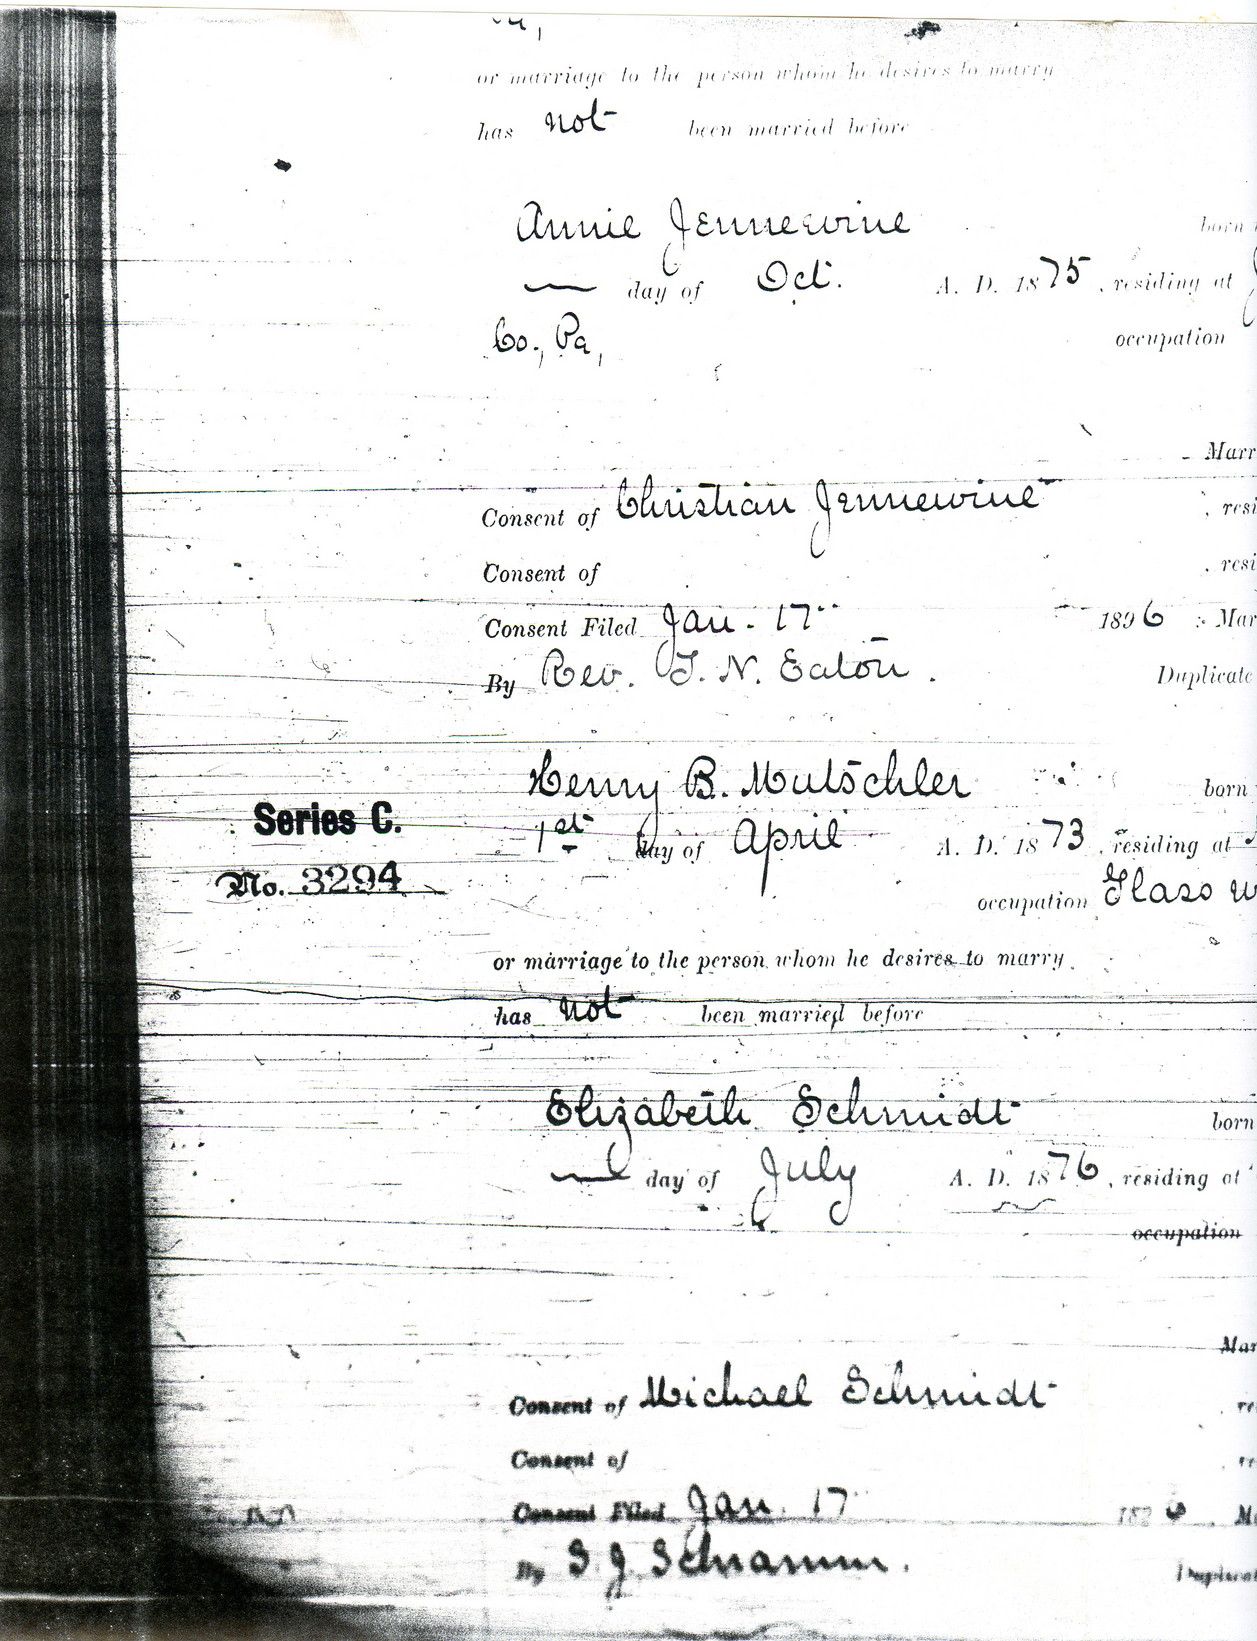 or marriage to the person whom he desires to marry
has not been married before
Annie Jennewine born
day of Oct. A. D. 1875, residing at
Co., Pa, occupation
Marr
Consent of Christian Jennewine, resi
Consent of , resi
Consent Filed Jan. 17 1896 Mar
By Rev. T. N. Eaton. Duplicate
Henry B. Mutschler born
Series C. 1st day of April A. D. 1873, residing at
No. 3294 occupation Glass w
or marriage to the person whom he desires to marry
has not been married before
Elizabeth Schmidt born
day of July A. D. 1876, residing at
occupation
Mar
Consent of Michael Schmidt , re
Consent of
Consent Filed Jan. 17 1896 M
By S. J. Schramm. Duplicat